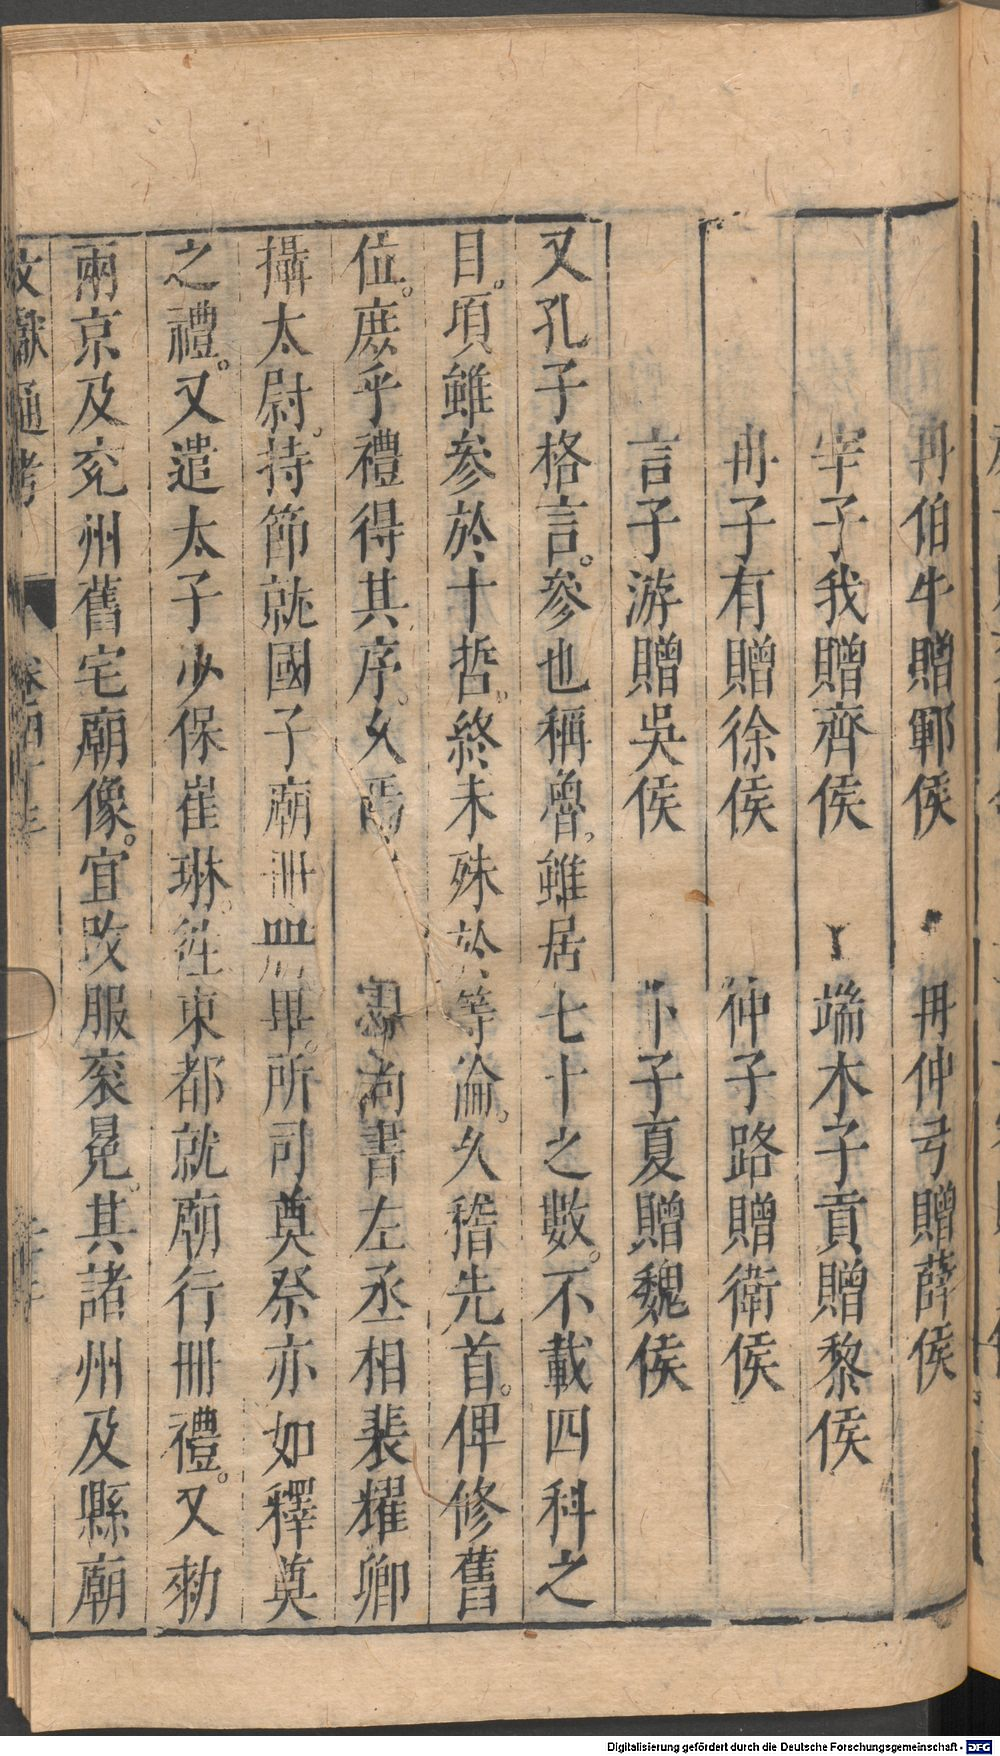 冉伯牛贈鄆侯　冉仲弓贈薛侯
宰子我贈齊侯　端木子貢贈黎侯
冉子有贈徐侯　仲子路贈衛侯
言子游贈吳侯　卜子夏贈魏侯
又孔子格言。參也稱魯。雖居七十之數。不載四科之
目。頃雖參於十哲。終未殊於等論。久稽先首。俾修舊
位。庶乎禮得其序。久焉　尚書左丞相裴耀卿
攝太尉。持節就國子廟冊畢。所司奠祭亦如釋奠
之禮。又遣太子少保崔琳。往東都就廟行冊禮。又勑
兩京及兖州舊宅廟像。宜改服衮冕。其諸州及縣廟
文獻通考
Digitalisierung gefördert durch die Deutsche Forschungsgemeinschaft - DFG